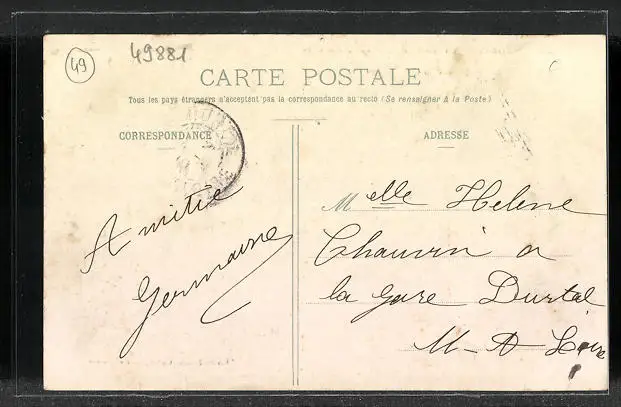 49
49881
CARTE POSTALE
Tous les pays étrangers n'acceptent pas la correspondance au recto (Se renseigner à la Poste)
CORRESPONDANCE
ADRESSE
Amitié
Germaine
Melle Helene
Chauvin a
la gare Durtal
M-&-Loire